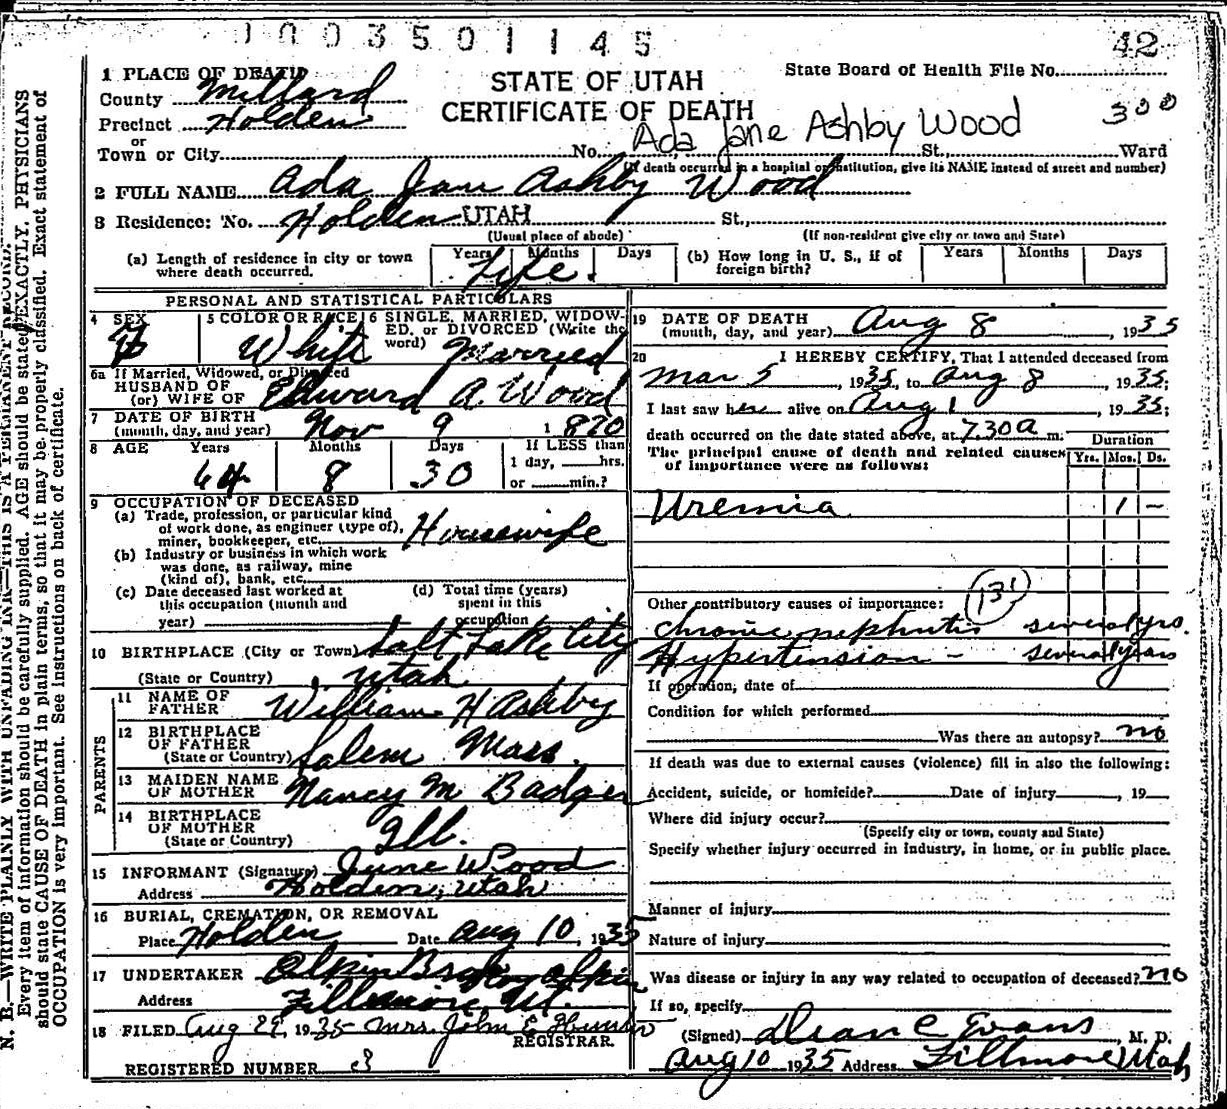 1003501145
42
1 PLACE OF DEATH
STATE OF UTAH
State Board of Health File No.
County Millard
CERTIFICATE OF DEATH
300
Precinct Holden
Ada Jane Ashby Wood
or
Town or City No. St., Ward
(If death occurred in a hospital or institution, give its NAME instead of street and number)
2 FULL NAME Ada Jane Ashby Wood
3 Residence: No. Holden UTAH St.,
(Usual place of abode) (If non-resident give city or town and State)
(a) Length of residence in city or town where death occurred.
Years Months Days
Life.
(b) How long in U. S., if of foreign birth?
Years Months Days
PERSONAL AND STATISTICAL PARTICULARS
4 SEX F
5 COLOR OR RACE White
6 SINGLE, MARRIED, WIDOWED, or DIVORCED (Write the word) Married
6a If Married, Widowed, or Divorced
HUSBAND OF
(or) WIFE OF Edward A. Wood
7 DATE OF BIRTH
(month, day, and year) Nov 9 1870
8 AGE Years Months Days If LESS than
64 8 30 1 day, hrs.
or min.?
9 OCCUPATION OF DECEASED
(a) Trade, profession, or particular kind
of work done, as engineer (type of),
miner, bookkeeper, etc. Housewife
(b) Industry or business in which work
was done, as railway, mine
(kind of), bank, etc.
(c) Date deceased last worked at
this occupation (month and
year)
(d) Total time (years)
spent in this
occupation
10 BIRTHPLACE (City or Town) Salt Lake City
(State or Country) Utah
PARENTS
11 NAME OF FATHER William H Ashby
12 BIRTHPLACE OF FATHER
(State or Country) Salem Mass.
13 MAIDEN NAME OF MOTHER Nancy M Badger
14 BIRTHPLACE OF MOTHER
(State or Country) Ill.
15 INFORMANT (Signature) June Wood
Address Holden, Utah
16 BURIAL, CREMATION, OR REMOVAL
Place Holden Date Aug 10, 1935
17 UNDERTAKER
Address Fillmore Ut.
18 FILED Aug 29, 1935 Mrs. John E Hunter
REGISTRAR.
REGISTERED NUMBER 3
19 DATE OF DEATH
(month, day, and year) Aug 8, 1935
20 I HEREBY CERTIFY, That I attended deceased from
Mar 5, 1935, to Aug 8, 1935;
I last saw her alive on Aug 1, 1935;
death occurred on the date stated above, at 7.30a m.
Duration
The principal cause of death and related causes
of importance were as follows:
Yrs. Mos. Ds.
Uremia 1 –
Other contributory causes of importance: 131
Chronic nephritis several yrs.
Hypertension – several years
If operation, date of
Condition for which performed
Was there an autopsy? no
If death was due to external causes (violence) fill in also the following:
Accident, suicide, or homicide? Date of injury, 19
Where did injury occur?
(Specify city or town, county and State)
Specify whether injury occurred in industry, in home, or in public place.
Manner of injury
Nature of injury
Was disease or injury in any way related to occupation of deceased? no
If so, specify
(Signed) Dean C Evans, M. D.
Aug 10 1935 Address Fillmore Utah
N. B.—WRITE PLAINLY WITH UNFADING INK—THIS IS A PERMANENT RECORD.
Every item of information should be carefully supplied. AGE should be stated EXACTLY. PHYSICIANS
should state CAUSE OF DEATH in plain terms, so that it may be properly classified. Exact statement of
OCCUPATION is very important. See instructions on back of certificate.